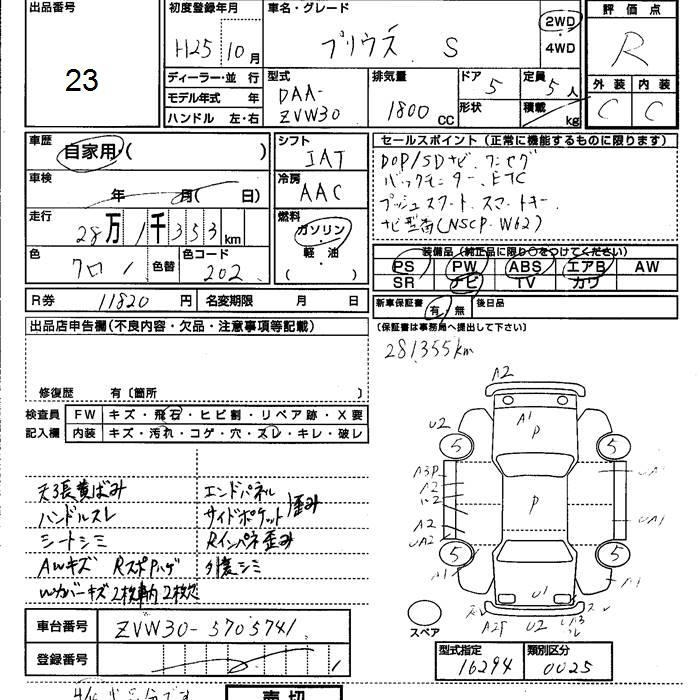 出品番号
23
初度登録年月
H25年10月
車名・グレード
プリウス S
2WD
4WD
評価点
R
外装 内装
C C
ディーラー・並行
モデル年式 年
ハンドル 左・右
型式
DAA-
ZVW30
排気量
1800 CC
ドア
5
形状
定員
5人
積載 kg
車歴
自家用・( )
車検
年 月( 日)
走行
28万1千353 km
色
クロ
色替
色コード
202
シフト
IAT
冷房
AAC
燃料
ガソリン
軽油
( )
セールスポイント(正常に機能するものに限ります)
DOP/SDナビ.ワンセグ
バックモニター.ETC
プッシュスタート.スマートキー.
ナビ型番(NSCP-W62)
装備品(純正品に限り○をつけてください)
PS PW ABS エアB AW
SR ナビ TV カワ
R券 11820円 名変期限 月 日
新車保証書 有・無 後日品
(保証書は事務局へ提出して下さい)
281355km
出品店申告欄(不良内容・欠品・注意事項等記載)
修復歴 有〔箇所 〕
検査員 FW キズ・飛石・ヒビ割・リペア跡・X要
記入欄 内装 キズ・汚れ・コゲ・穴・スレ・キレ・破レ
天3長黄ばみ エンドパネル
ハンドルスレ サイドポケット 歪み
シートシミ Rインパネ歪み
AWキズ RスポPハゲ 内張シミ
Wカバーキズ2枚車内2枚欠
A2
A1
P
U2
5
5
A3P
A2
A2
UA2
P
UA1
5
5
A1
U1
U2
スペア
車台番号 ZVW30-5705741
登録番号
型式指定 類別区分
16294 0025
売切